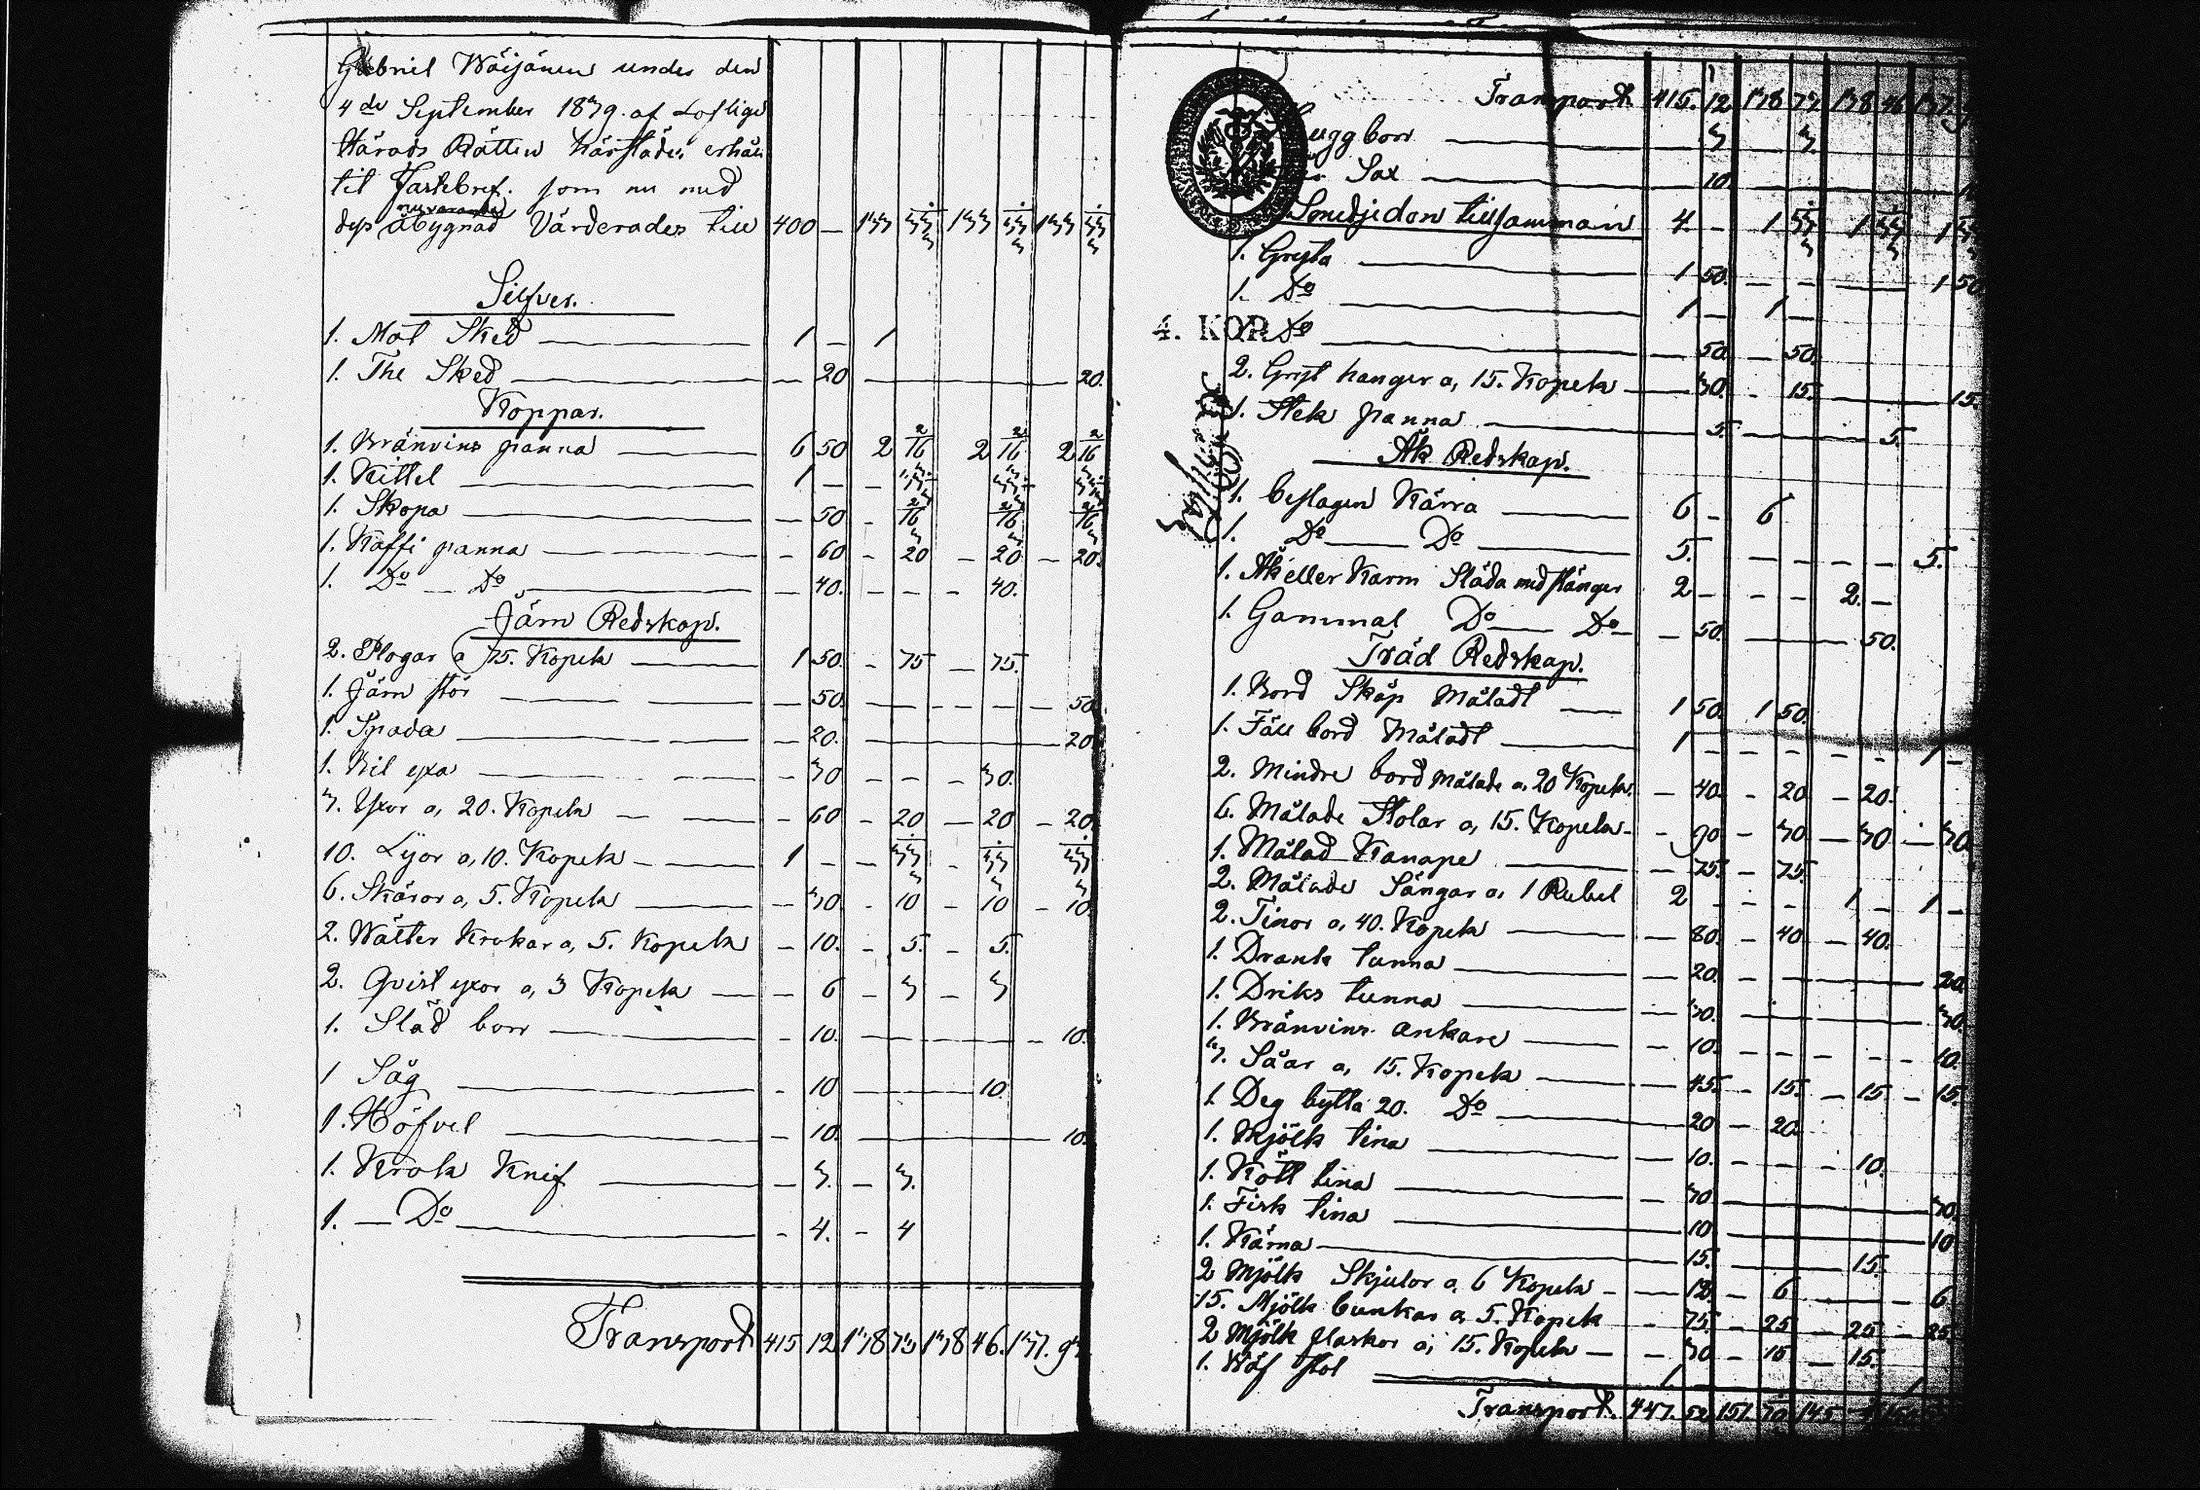 Gabriel Wäijänen under den
4de September 1879. af Loflige
Härads Rätten härstädes erhål
tit Fastebref. som nu med
nuvarande
dess åbygnad Värderades till 400 — 133 33⅓ 133 33⅓ 133 33⅓
Silfver.
1. Mat Sked — 1 — 1
1. The Sked — 20 — 20.
Koppar.
1. Bränvins panna — 6 50 2 16⅔ 2 16⅔ 2 16⅔
1. Kittel — 1 — — 33⅓ 33⅓ 33⅓
1. Skopa — 50 — 16⅔ 16⅔ 16⅔
1. Kaffi panna — 60 — 20 — 20 — 20.
1. Do — Do — 40. — 40.
Järn Redskap.
2. Plogar a 75. Kopek — 1 50. — 75 — 75.
1. Järn stör — 50. — 50
1. Spada — 20. — 20
1. Bil yxa — 30 — 30.
3. Yxor a, 20. Kopek — 60 — 20 — 20 — 20
10. Lijor a, 10. Kopek — 1 — — 33⅓ — 33⅓ 33⅓
6. Skäror a, 5. Kopek — 30. — 10 — 10 — 10
2. Watter Krokar a, 5. Kopek — 10. — 5. — 5.
2. Qvist yxor a, 3 Kopek — 6 — 3 — 3
1. Släd borr — 10. — 10.
1 Såg — 10 — 10
1. Höfvel — 10. — 10.
1. Krok Knif — 3. — 3.
1. — Do — 4. — 4
Transport 415 12 138 73 138 46. 137. 93
Transport 415. 12 138 73 138 46 137.
ugg borr — 3 3.
Sax — 10.
Smidjedon tillsammans 4. — 1 33⅓ 1 33⅓ 1 33⅓
1. Gryta — 1 50. — 1 50
1. Do — 1 — 1 —
4. KOP.
1. Do — 50. — 50.
2. Gryt hanger a, 15. Kopek — 30. — 15. — 15.
1. Stek panna — 5. — 5.
Åk Redskap.
1. beslagen Kärra — 6 — 6
1. Do — Do — 5. — 5.
1. Åk eller Karm Släda med stänger 2 — — — 2. —
1. Gammal Do — Do — 50. — 50.
Träd Redskap.
1. Bord Skåp Måladt — 1 50. 1 50.
1. Fäll bord Måladt — 1 — — — 1 —
2. Mindre bord målade a. 20 Kopek. — 40. — 20 — 20.
6. Målade Stolar a, 15. Kopek — 90 — 30 — 30 — 30
1. Målad Kanape — 75. — 75.
2. Målade Sängar a. 1 Rubel 2 — — — 1 — 1 —
2. Tinor a, 40. Kopek — 80. — 40 — 40.
1. Drank tunna — 20. — 20.
1. Driks tunna — 30. — 30.
1. Bränvins ankare — 10. — 10.
3. Såar a, 15. Kopek — 45. — 15. — 15 — 15.
1. Deg bytta 20. Do — 20 — 20
1. Mjölk tina — 10. — 10.
1. Kött tina — 30 — 30.
1. Fisk tina — 10 — 10
1. Kärna — 15. — 15.
2 Mjölk Skjulor a, 6 Kopek — 12. — 6 — 6
15. Mjölk bunkar a, 5. Kopek — 75. — 25 — 25 — 25.
2 Mjölk flaskor a, 15. Kopek — 30 — 15 — 15.
1. Wäf stol — 1 — 1
Transport. 447. 52 151